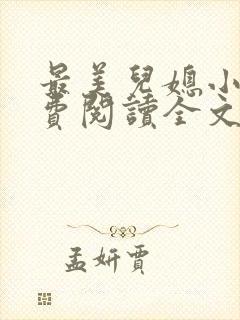 最美兒媳小
費閱讀全文
孟妍賈